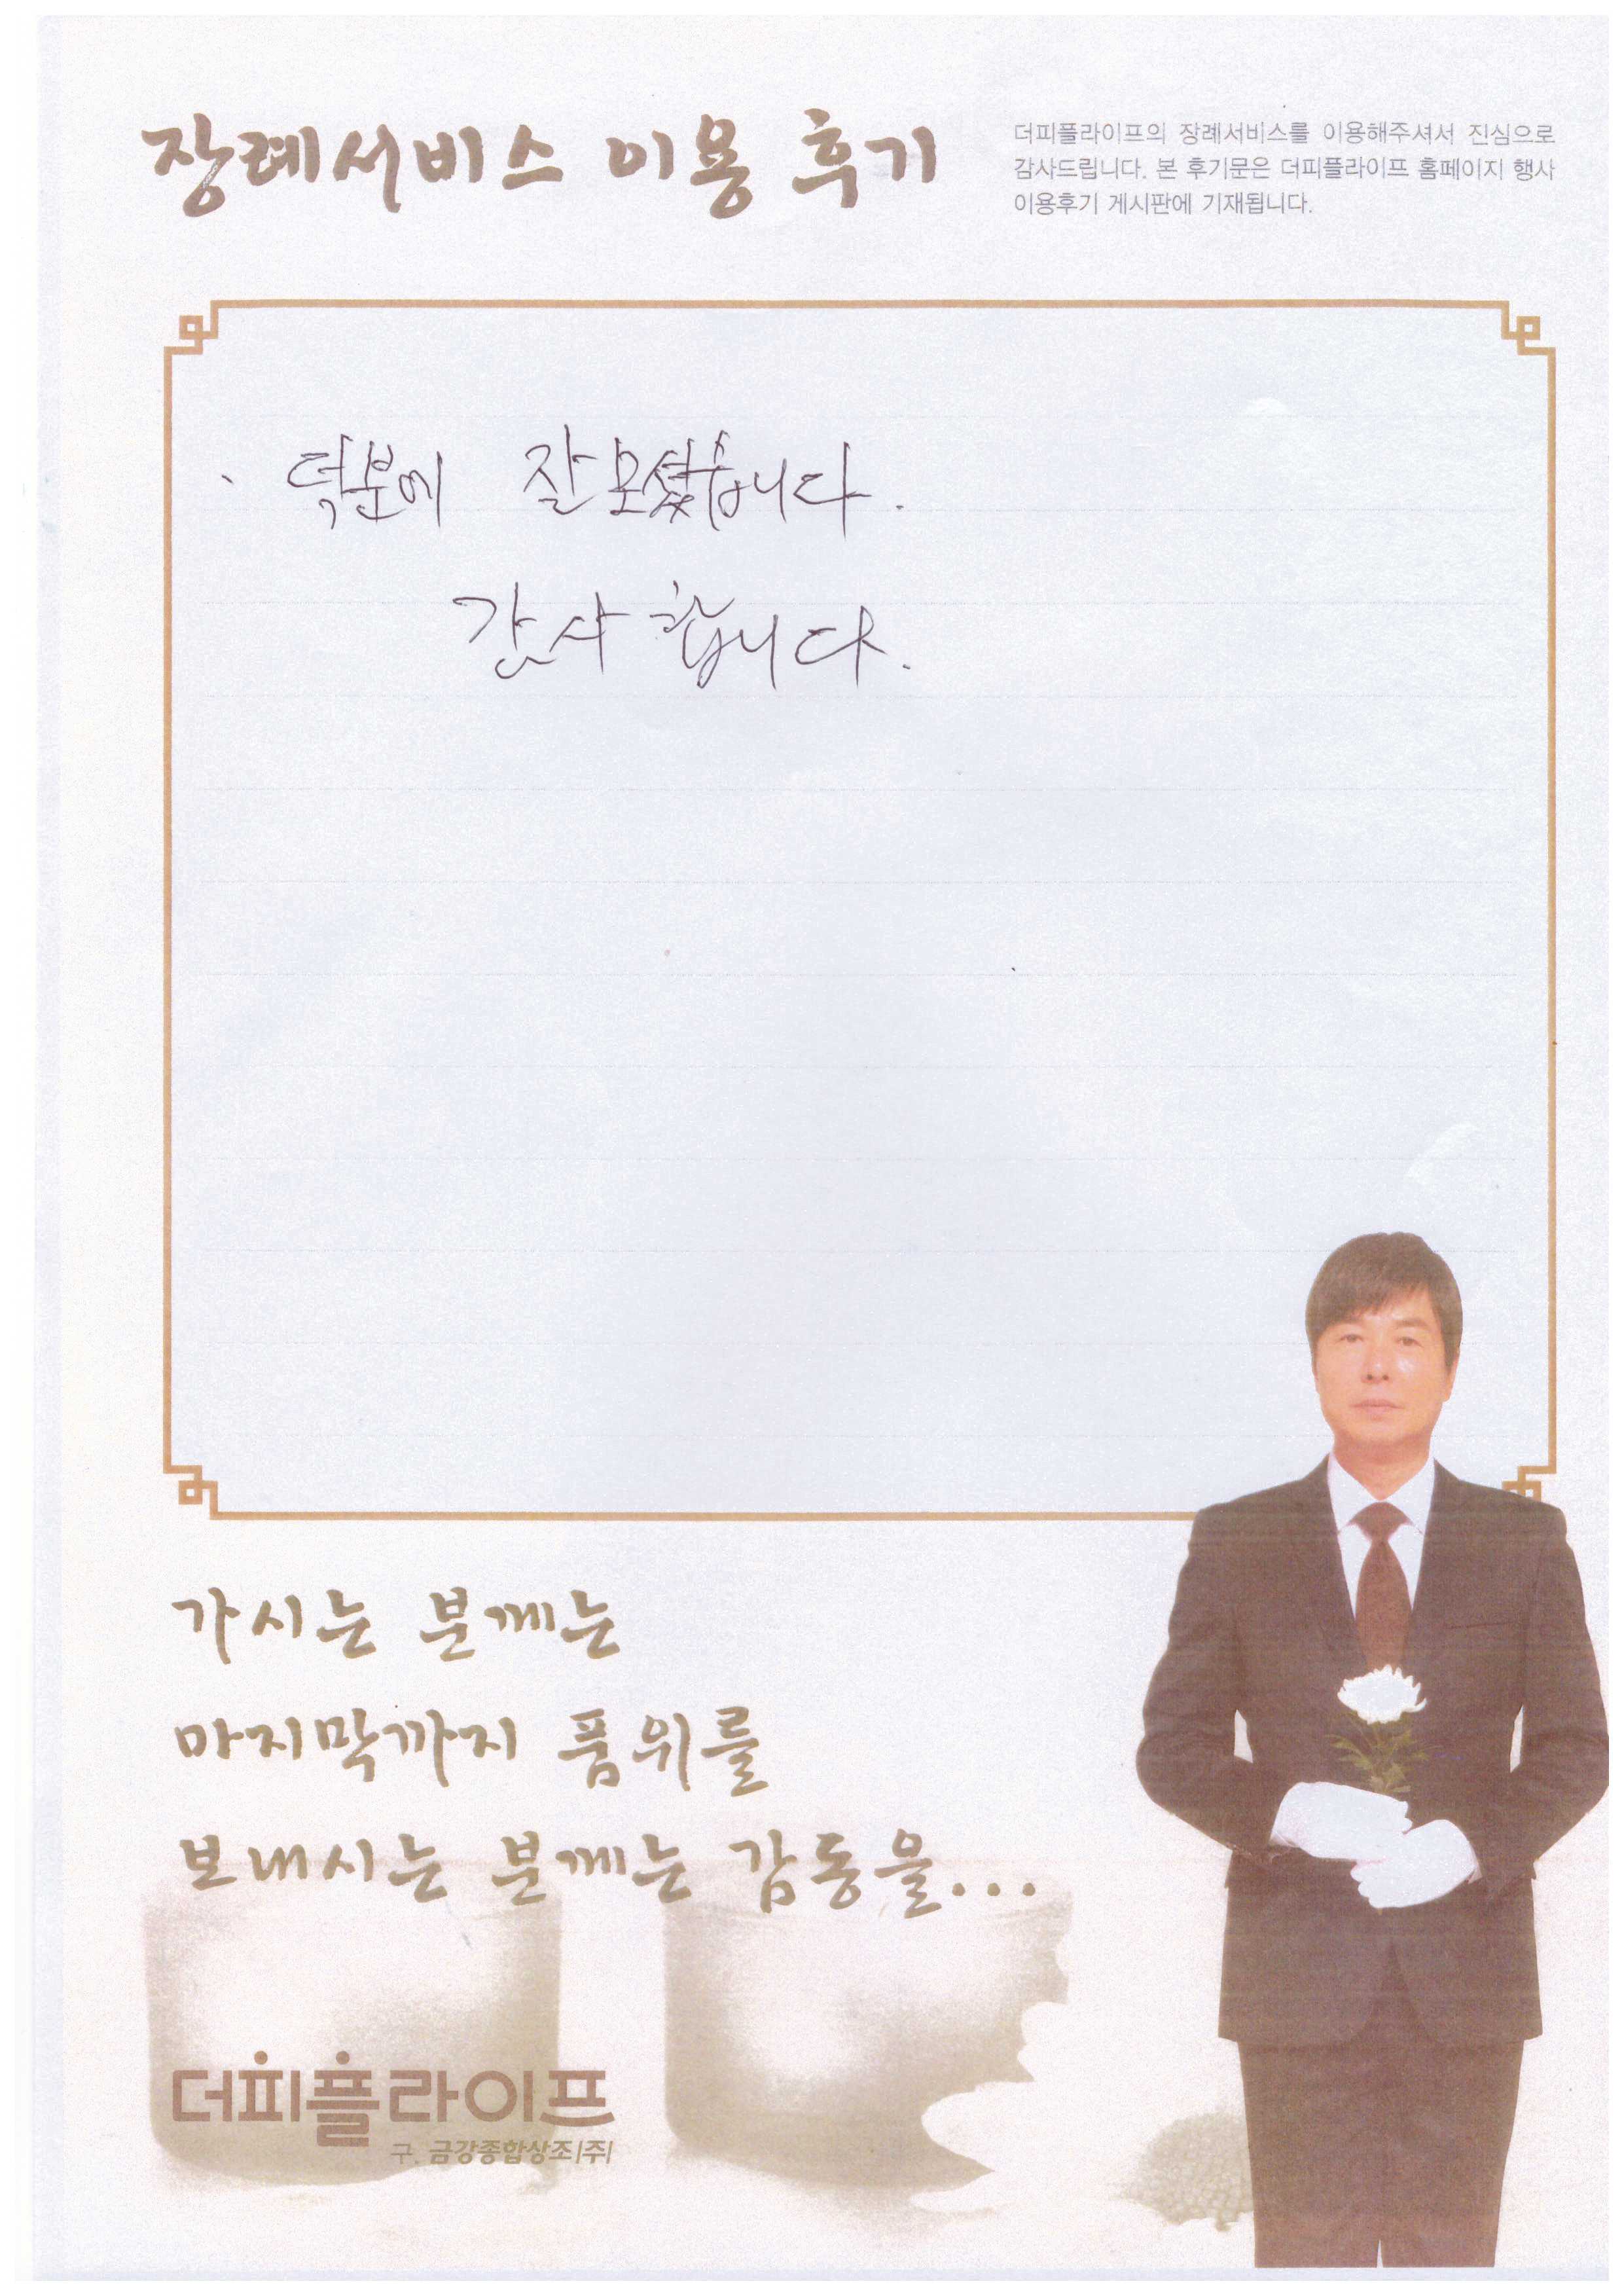 장례서비스 이용 후기
더피플라이프의 장례서비스를 이용해주셔서 진심으로
감사드립니다. 본 후기문은 더피플라이프 홈페이지 행사
이용후기 게시판에 기재됩니다.
덕분에 잘 모셨습니다.
감사 합니다.
가시는 분께는
마지막까지 품위를
보내시는 분께는 감동을...
더피플라이프
구. 금강종합상조(주)